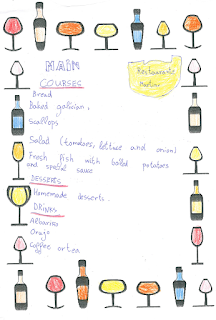 MAIN
COURSES
Restaurante
Bread
Baked galician,
Scallops
Salad (tomatoes, lettuce and onion)
Fresh fish with boiled potatoes
and special sauce
DESSERTS
Homemade desserts.
DRINKS
Albariño
Coffee or tea